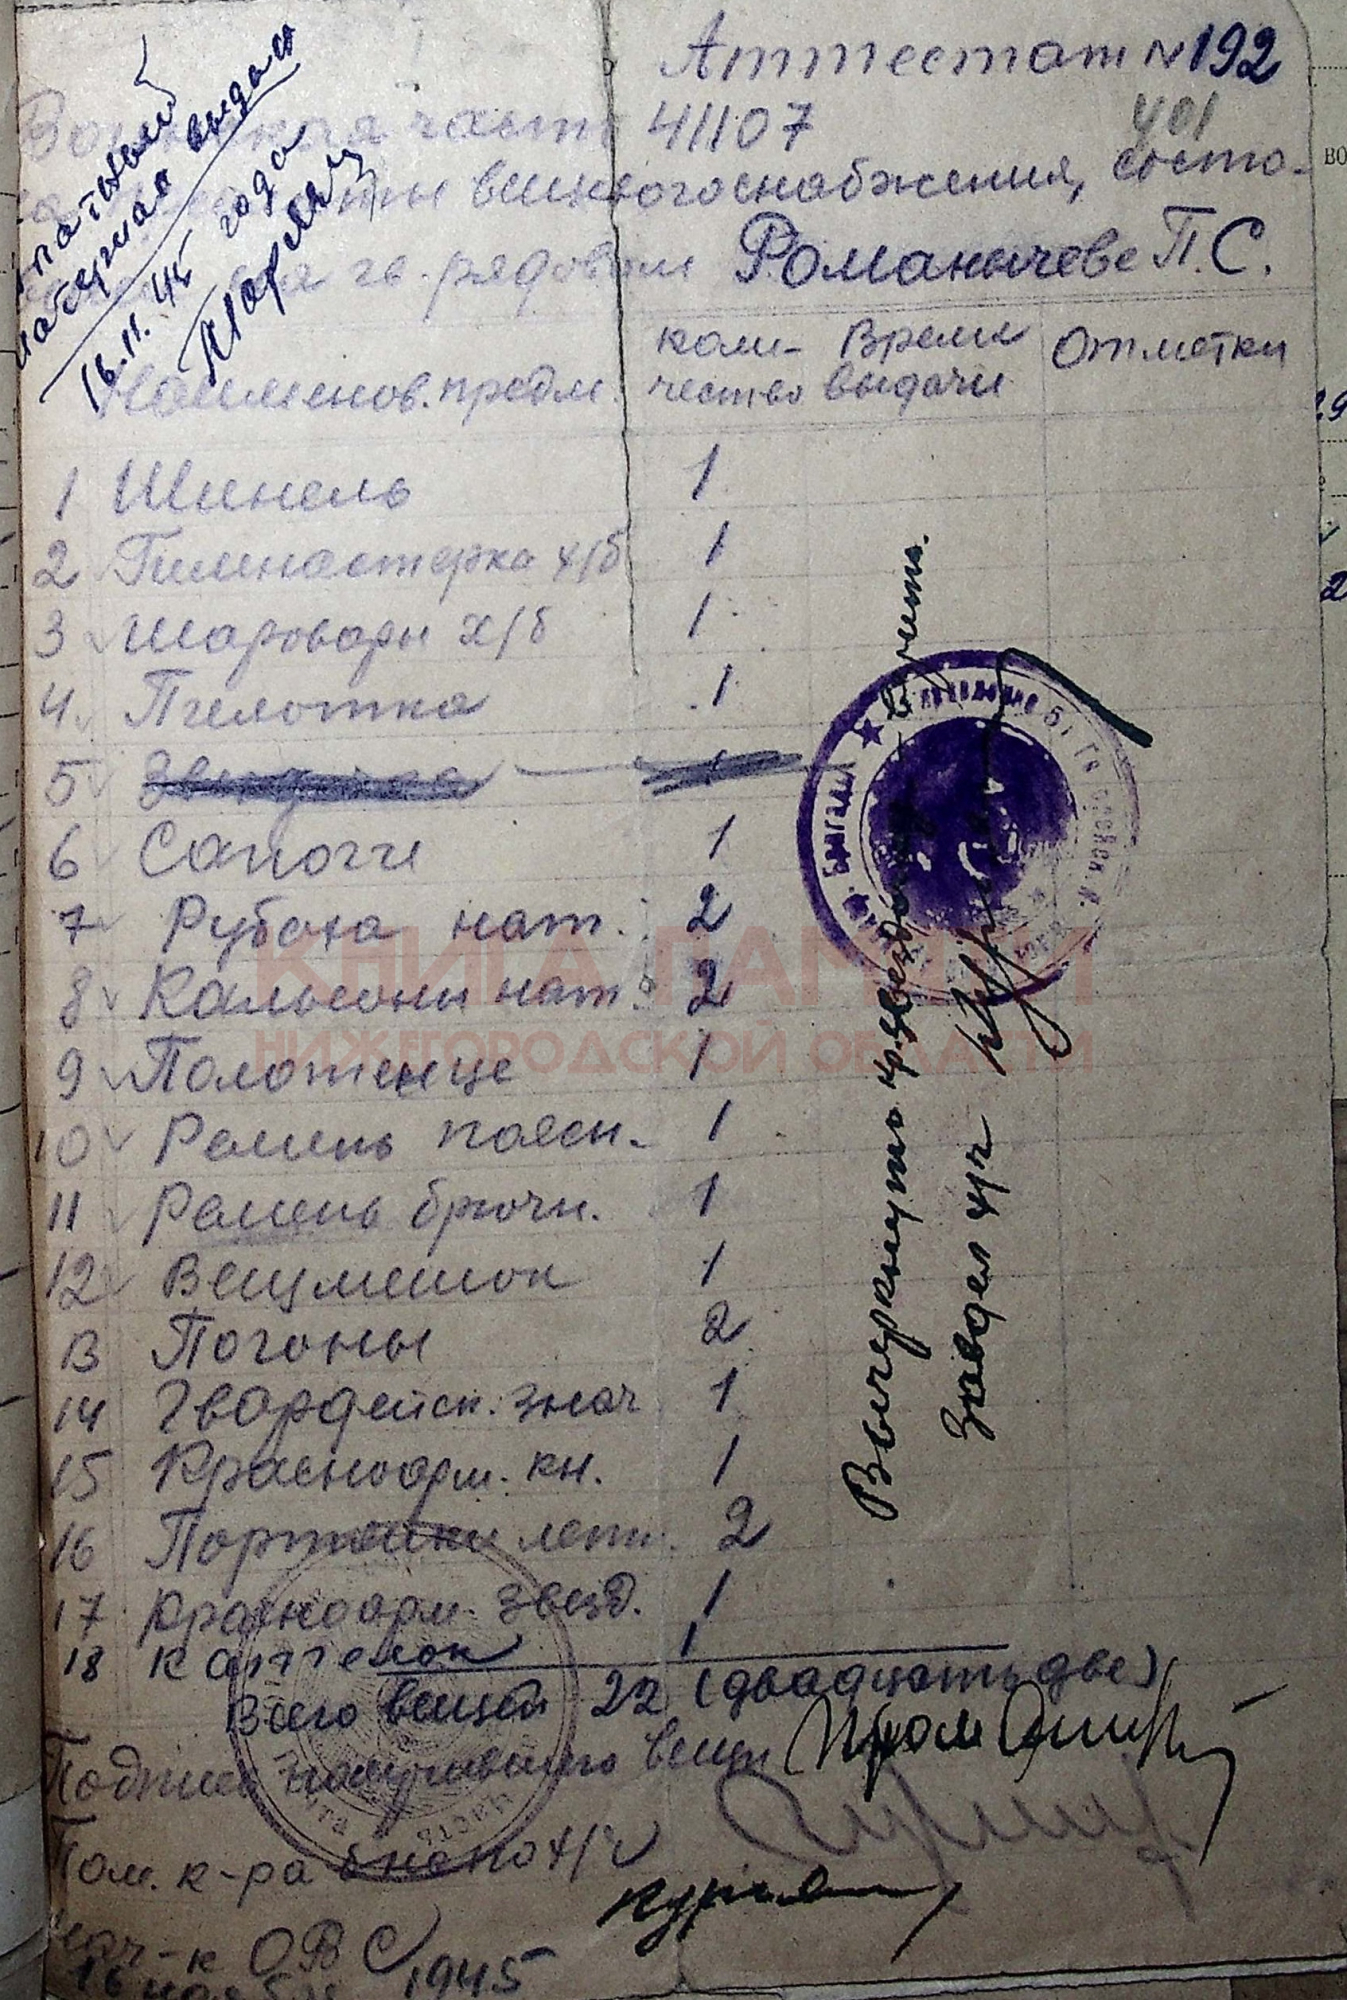 Аттестат №192
Воинская часть 41107
401
вещевого снабжения, состо-
гв. рядовом Романычеве П.С.
16.11.45 года
Наименов. предм. коли-чество Время выдачи Отметки
1 Шинель 1
2 Гимнастерка х/б 1
3 Шаровары х/б 1
4 Пилотка 1
5
6 Сапоги 1
7 Рубаха нат. 2
8 Кальсоны нат. 2
9 Полотенце 1
10 Ремень поясн. 1
11 Ремень брючн. 1
12 Вещмешок 1
13 Погоны 2
14 Гвардейск. знач 1
15 Красноарм. кн. 1
16 Портянки летн. 2
17 Красноарм. звезд. 1
18 Котелок 1
Всего вещей 22 (двадцать две)
Подпись получившего вещи
Пом. к-ра по х/ч
Нач-к ОВС
16 ноября 1945
Вычеркнуто
Заводел
Бригады
КНИГА ПАМЯТИ
НИЖЕГОРОДСКОЙ ОБЛАСТИ